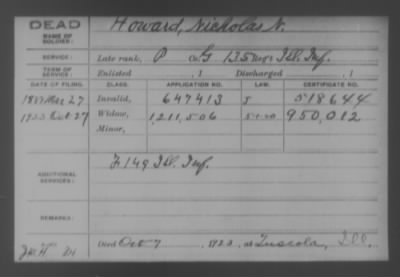 DEAD Howard, Nicholas N.
NAME OF SOLDIER:
SERVICE: Late rank, P Co. G 135 Reg't Ill. Inf.
TERM OF SERVICE: Enlisted , 1 Discharged , 1
DATE OF FILING. CLASS. APPLICATION NO. LAW. CERTIFICATE NO.
Mar 27 Invalid, 647413 518644
1923 Oct-27 Widow, 1,211,506 5-1-20 950,012
Minor,
ADDITIONAL SERVICES: F 149 Ill. Inf.
REMARKS:
Died Oct 7 , 1923, at Tuscola, Ill.